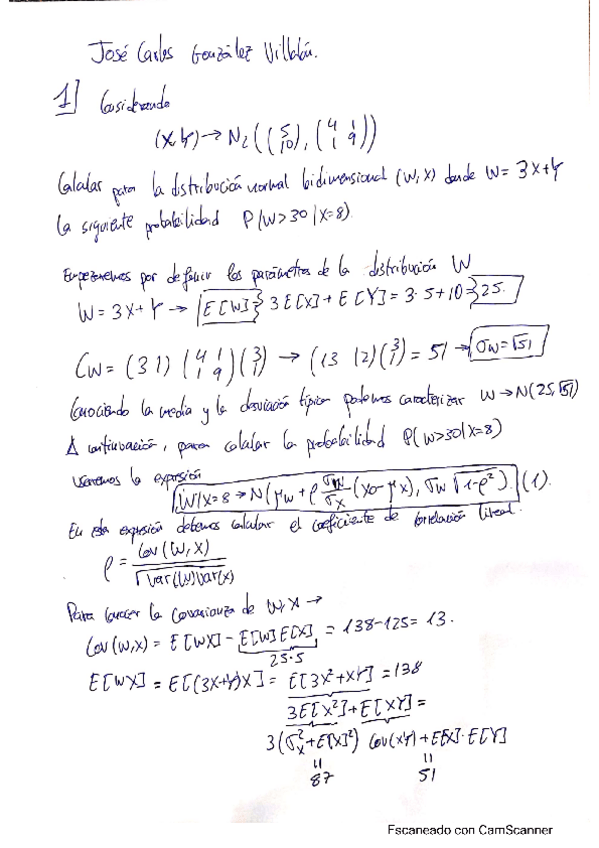 José Carlos González Villalón.
1] Considerando
(X,Y) → N₂((5 10), (4 1 1 9))
Calcular para la distribución normal bidimensional (W,X) donde W = 3X+Y
la siguiente probabilidad P(W>30|X=8).
Empezaremos por definir los parámetros de la distribución W
W = 3X+Y → E[W] = 3E[X]+E[Y] = 3·5+10 = 25.
CW = (3 1) (4 1 1 9) (3 1) → (13 12)(3 1) = 51 → σw = √51
Conociendo la media y la desviación típica podemos caracterizar W → N(25,√51)
A continuación, para calcular la probabilidad P(W>30|X=8)
usaremos la expresión
W/X=8 → N(μw + ρ σw/σx (x₀ - μx), σw √1-ρ²). (1).
En esta expresión debemos calcular el coeficiente de correlación lineal.
ρ = Cov(W,X) / √Var(W)Var(X)
Para conocer la covarianza de W,X →
Cov(W,X) = E[WX] - E[W]E[X] = 138-125 = 13.
25·5
E[WX] = E[(3X+Y)X] = E[3X²+XY] = 138
3E[X²]+E[XY] =
3(σx²+E[X]²) Cov(XY)+E[X]·E[Y]
87 51
Escaneado con CamScanner